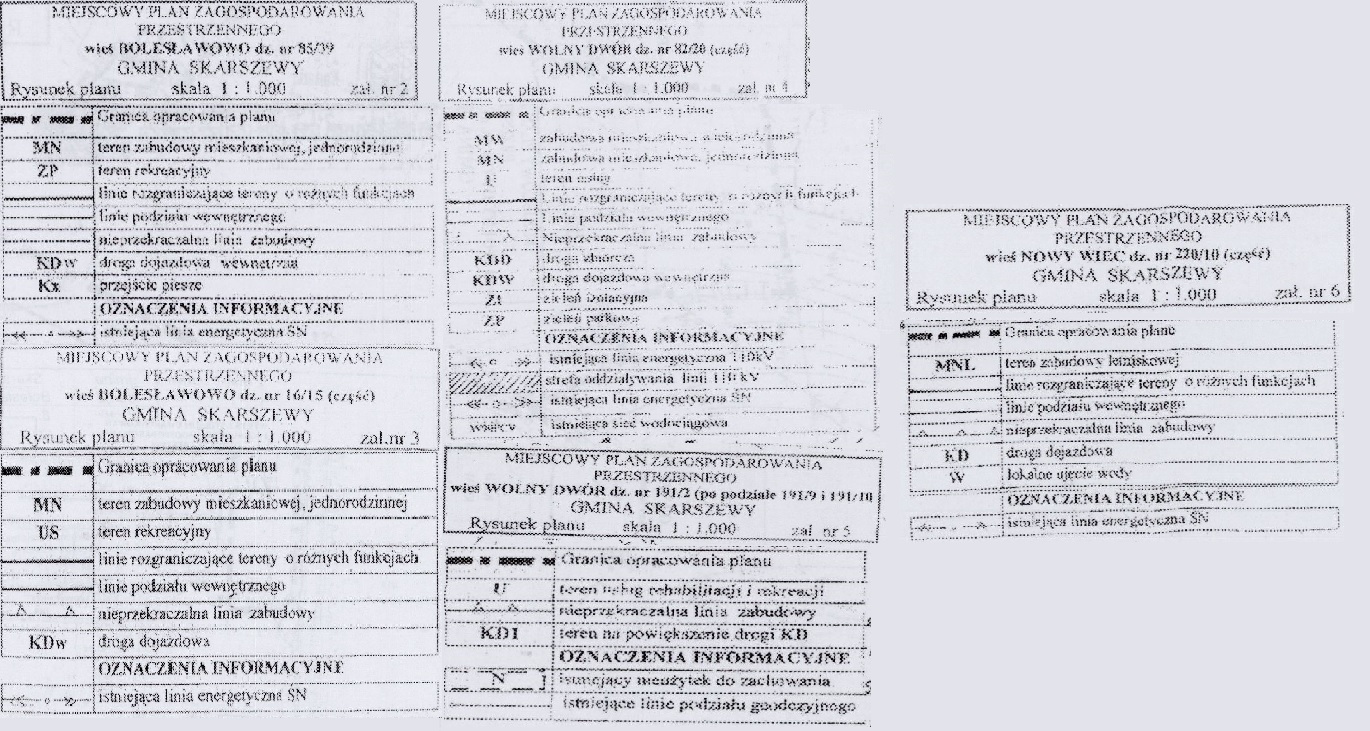 MIEJSCOWY PLAN ZAGOSPODAROWANIA
PRZESTRZENNEGO
wieś BOLESŁAWOWO dz. nr 85/39
GMINA SKARSZEWY
Rysunek planu skala 1 : 1.000 zał. nr 2
Granica opracowania planu
MN teren zabudowy mieszkaniowej, jednorodzinnej
ZP teren rekreacyjny
linie rozgraniczające tereny o różnych funkcjach
linie podziału wewnętrznego
nieprzekraczalna linia zabudowy
KDw droga dojazdowa wewnętrzna
Kx przejście piesze
OZNACZENIA INFORMACYJNE
istniejąca linia energetyczna SN
MIEJSCOWY PLAN ZAGOSPODAROWANIA
PRZESTRZENNEGO
wieś BOLESŁAWOWO dz. nr 16/15 (część)
GMINA SKARSZEWY
Rysunek planu skala 1 : 1.000 zał.nr 3
Granica opracowania planu
MN teren zabudowy mieszkaniowej, jednorodzinnej
US teren rekreacyjny
linie rozgraniczające tereny o różnych funkcjach
linie podziału wewnętrznego
nieprzekraczalna linia zabudowy
KDw droga dojazdowa
OZNACZENIA INFORMACYJNE
istniejąca linia energetyczna SN
MIEJSCOWY PLAN ZAGOSPODAROWANIA
PRZESTRZENNEGO
wieś WOLNY DWÓR dz. nr 82/20 (część)
GMINA SKARSZEWY
Rysunek planu skala 1 : 1.000 zał. nr 4
Granica opracowania planu
MW zabudowa mieszkaniowa wielorodzinna
MN zabudowa mieszkaniowa, jednorodzinna
U teren usług
Linie rozgraniczające tereny o różnych funkcjach
Linie podziału wewnętrznego
Nieprzekraczalna linia zabudowy
droga zbiorcza
KDW droga dojazdowa wewnętrzna
ZI zieleń izolacyjna
ZP zieleń parkowa
OZNACZENIA INFORMACYJNE
istniejąca linia energetyczna 110kV
strefa oddziaływania linii 110 kV
istniejąca linia energetyczna SN
istniejąca sieć wodociągowa
MIEJSCOWY PLAN ZAGOSPODAROWANIA
PRZESTRZENNEGO
wieś WOLNY DWÓR dz. nr 191/2 (po podziale 191/9 i 191/10
GMINA SKARSZEWY
Rysunek planu skala 1 : 1.000 zał nr 5
Granica opracowania planu
U teren usług rehabilitacji i rekreacji
nieprzekraczalna linia zabudowy
KD1 teren na powiększenie drogi KD
OZNACZENIA INFORMACYJNE
N istniejący nieużytek do zachowania
istniejące linie podziału geodezyjnego
MIEJSCOWY PLAN ZAGOSPODAROWANIA
PRZESTRZENNEGO
wieś NOWY WIEC dz. nr 220/10 (część)
GMINA SKARSZEWY
Rysunek planu skala 1 : 1.000 zał. nr 6
Granica opracowania planu
MNL teren zabudowy letniskowej
linie rozgraniczające tereny o różnych funkcjach
linie podziału wewnętrznego
nieprzekraczalna linia zabudowy
KD droga dojazdowa
W lokalne ujęcie wody
OZNACZENIA INFORMACYJNE
istniejąca linia energetyczna SN